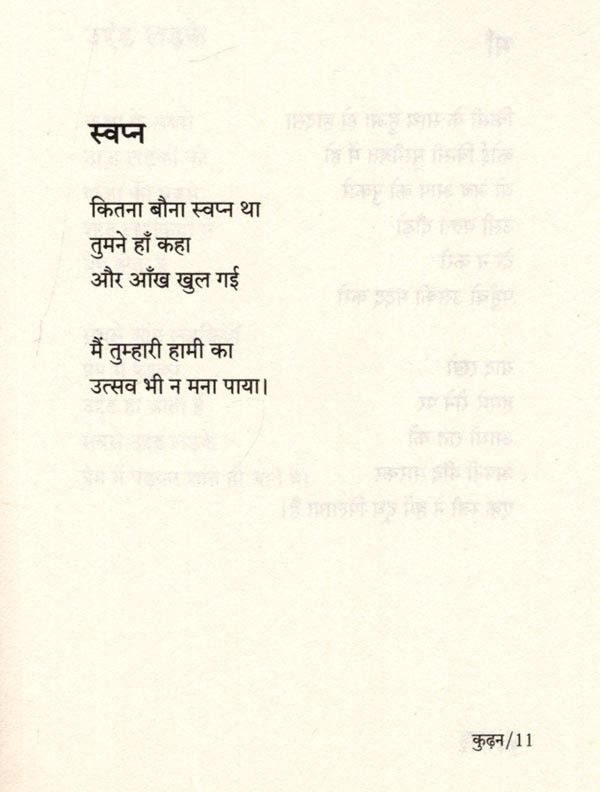 स्वप्न
कितना बौना स्वप्न था
तुमने हाँ कहा
और आँख खुल गई
मैं तुम्हारी हामी का
उत्सव भी न मना पाया।
कुढ़न/11